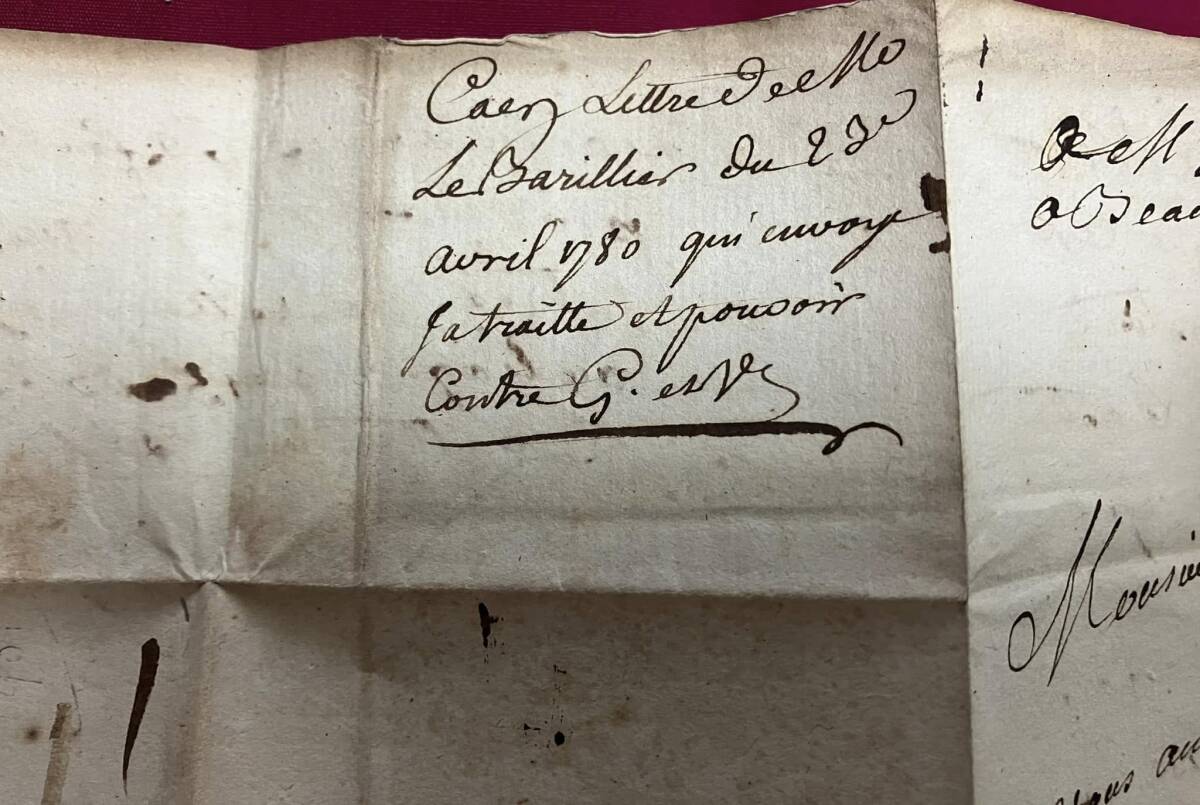 Caen Lettre de Mo
Le Barillier du 23e
avril 1780 qui envoye
sa traitte et pouvoir
Contre G. et Ve
De M
a Beau
Monsieu